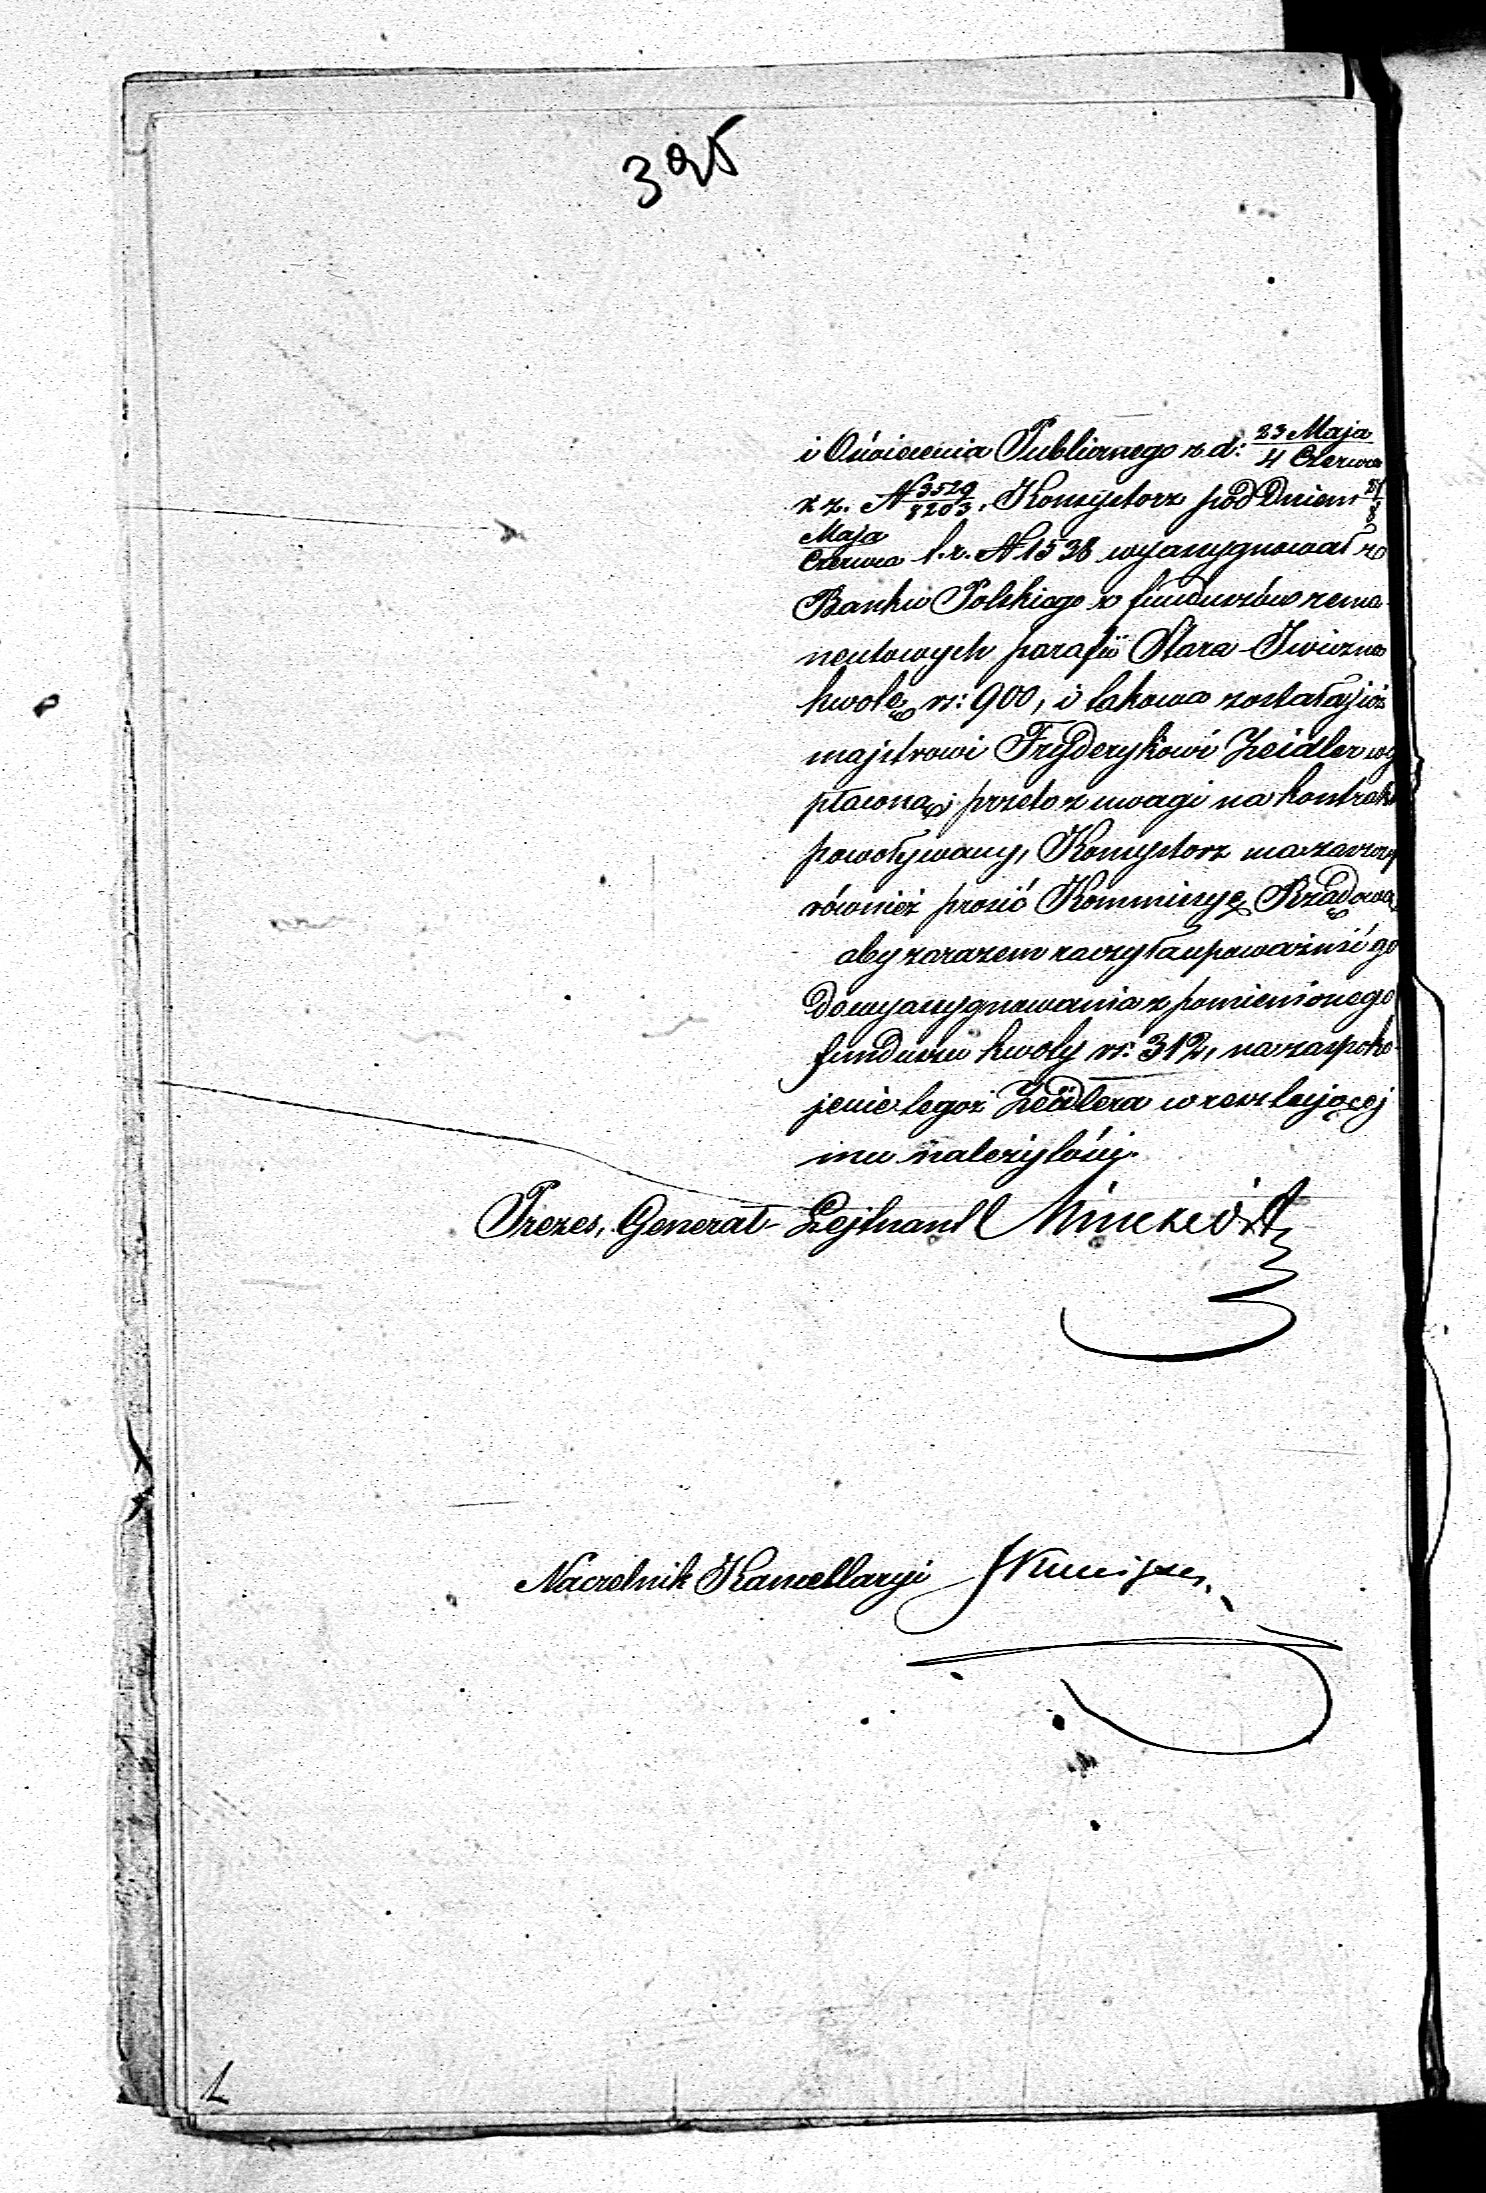 395
i Oświecenia Publicznego z d: 23 Maja / 4 Czerwca
z z. N 3529/8203, Konsystorz pod Dniem
Maja / Czerwca b. r. N 1538 wyasygnował z
Banku Polskiego z funduszów rema-
nentowych parafii Stara-Iwiczna
kwotę rs: 900, i takowa została już
majstrowi Fryderykowi Zeidler wy
płaconą; przeto z uwagi na kontrakt
powoływany, Konsystorz ma zaszczyt
również prosić Kommisyę Rządową
aby zarazem raczyła upoważnić go
do wyasygnowania z pomienionego
funduszu kwoty rs: 312, na zaspoko-
jenie tegoż Zeidlera w resztującej
mu należytości.
Prezes, Generał-Lejtnant
Naczelnik Kancellaryi